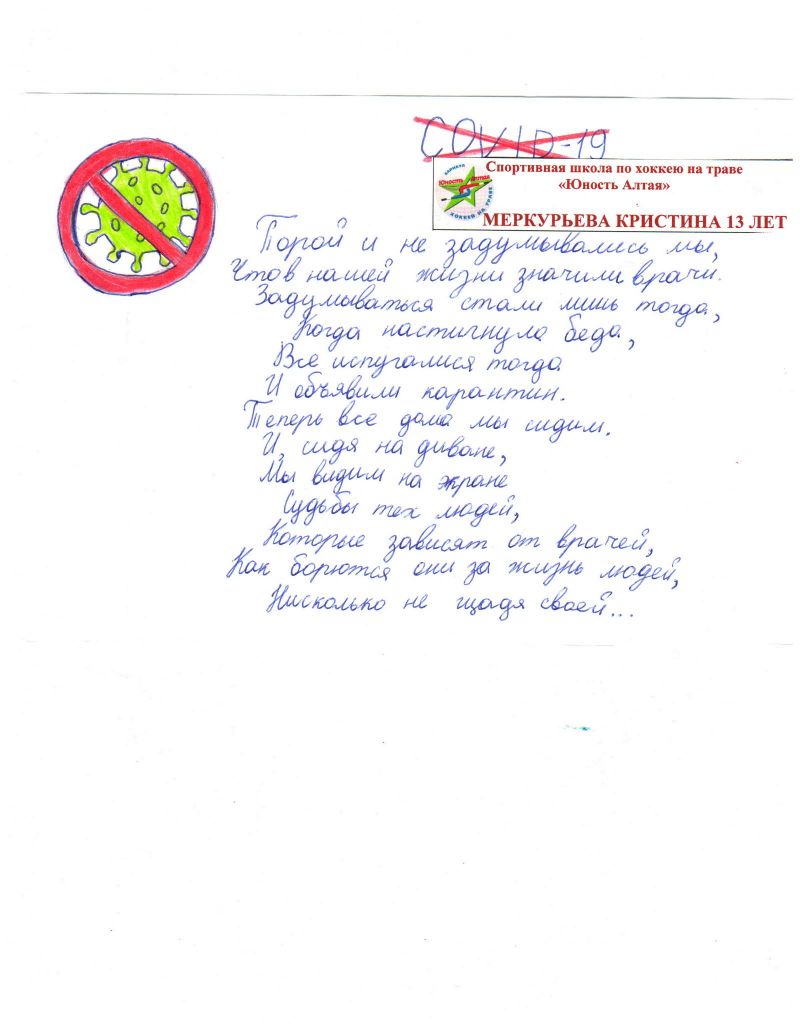 COVID-19
Спортивная школа по хоккею на траве
«Юность Алтая»
БАРНАУЛ
Юность Алтая
ХОККЕЙ НА ТРАВЕ
МЕРКУРЬЕВА КРИСТИНА 13 ЛЕТ
Порой и не задумывались мы,
Что в нашей жизни значили врачи.
Задумываться стали лишь тогда,
Когда настигнула беда,
Все испугалися тогда
И объявили карантин.
Теперь все дома мы сидим.
И, сидя на диване,
Мы видим на экране
Судьбы тех людей,
Которые зависят от врачей,
Как борются они за жизнь людей,
Нисколько не щадя своей...